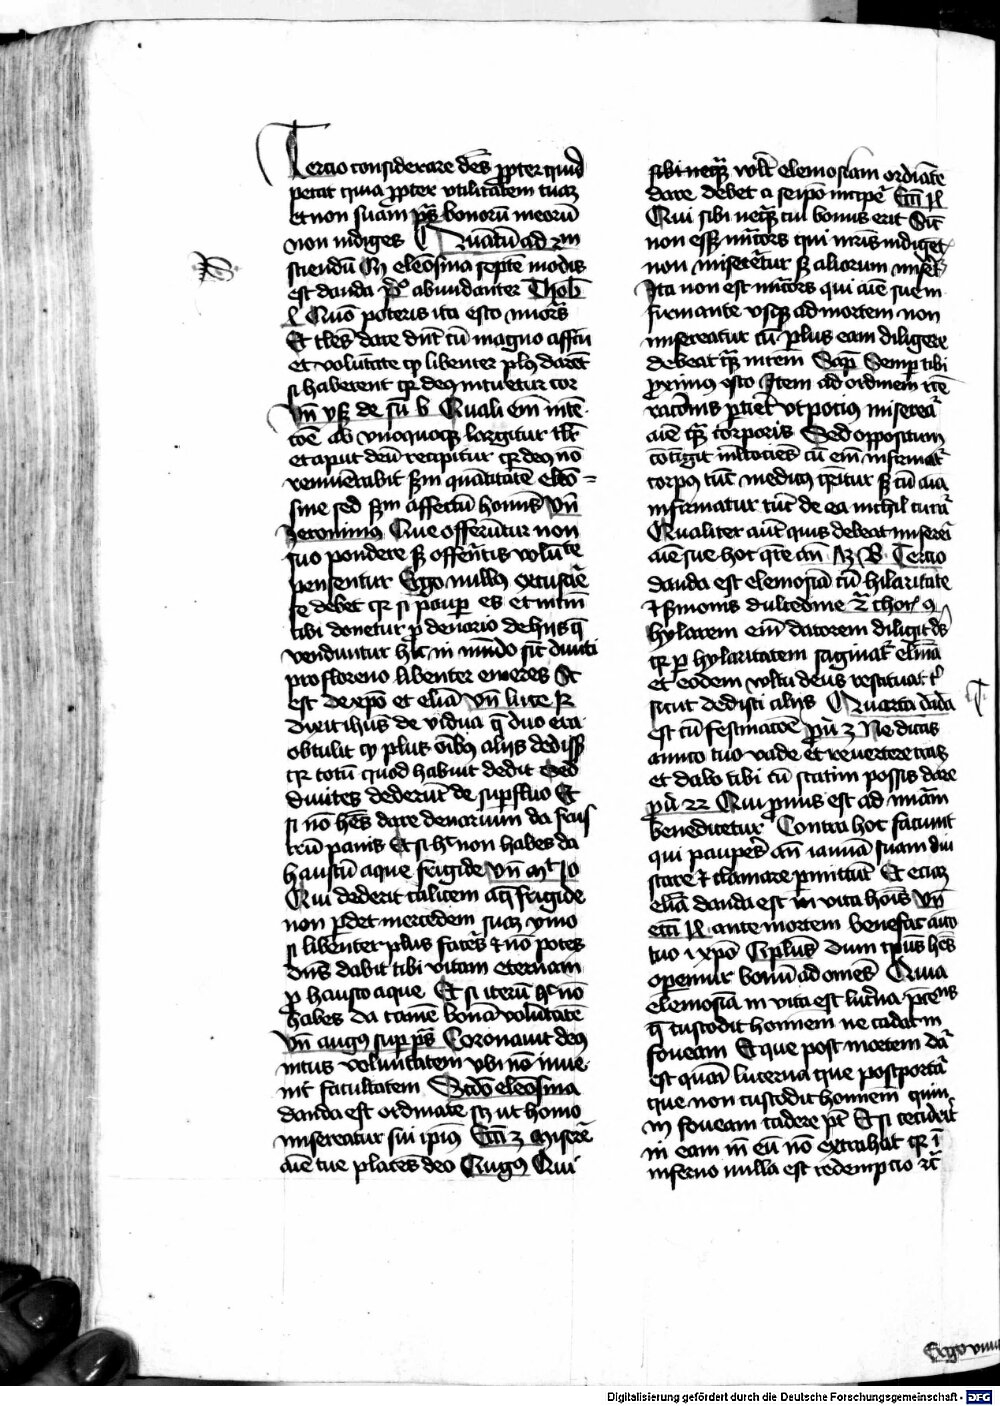 Tercio considerare debes propter quid
petat quia propter utilitatem tuam
et non suam ps bonorum meorum
non indiges Quantum ad 2m
sciendum quod eleosina septem modis
est danda Po abundanter Thob
4 Quomodo poteris ita esto misericors
Et tales dare debent cum magno affectu
et voluntate quod libenter plus darent
si haberent quia deus intuetur cor
Unde Quali enim inten
cione ab unoquoque largitur taliter
et aput deum recipitur quia deus non
remunerabit secundum quantitatem eleo=
sine sed secundum affectum hominis Unde
Jeronimus Que offeruntur non
suo pondere sed offerentis voluntate
pensentur Ergo nullus excusare
se debet quia si pauper es et nichil
tibi donetur pro denario de hiis que
venduntur hic in mundo sicut diviti
pro floreno libenter emeres Sic
est de christo et elemosina Unde luce 21
Dixit ihesus de vidua que duo era
obtulit quod plus omnibus aliis dedisset
quia totum quod habuit dedit Sed
divites dederunt de superfluo Et
si non habes dare denarium da frus
trum panis Et si hoc non habes da
haustum aque frigide Unde Mt 10
Qui dederit calicem aque frigide
non perdet mercedem suam ymo
si libenter plus faceres et non potes
dominus dabit tibi vitam eternam
pro hausto aque Et si iterum hoc non
habes da tamen bonam voluntatem
Unde augus super ps Coronavit deus
intus voluntatem ubi non inve
nit facultatem Secundo eleosina
danda est ordinate scilicet ut homo
misereatur sui ipsius Ecci 3 Miserere
anime tue placens deo Augus Qui
sibi nequam vult elemosiam ordinate
dare debet a seipso incipere Ecci 14
Qui sibi nequam cui bonus erit Sicut
non esset misericors qui matris indigentis
non misereretur sed aliorum miser
Ita non est misericors qui anime sue in
firmante usque ad mortem non
misereatur cum plus eam diligere
debeat quam matrem Semper tibi
proximus esto Item ad ordinem recte
racionis pertinet ut potius miserea
anime quam corporis Sed oppositum
contigit multociens cum enim infirmatur
corpus tunc medicus queritur sed cum anima
infirmatur tunc de ea nichil curatur
Qualiter autem quis debeat misereri
anime sue hoc quere an Tercio
danda est elemosina cum hilaritate
et sermonis dulcedine 2 Chor 9
Hylarem enim datorem diligit deus
quia per hylaritatem saginatur elemosina
et eodem vultu deus restituat tibi
sicut dedisti aliis Quarta danda
est cum festinacione prov 3 Ne dicas
amico tuo vade et revertere cras
et dabo tibi cum statim possis dare
prov 22 Qui pronus est ad misericordiam
benedicetur Contra hoc faciunt
qui pauperes ante ianuam suam diu
stare et clamare permittunt Et eciam
elemosina danda est in vita hominis Unde
ecci 14 ante mortem benefac amico
tuo i christo Dum tempus habemus
operemur bonum ad omnes Quia
elemosina in vita est lucerna precedens
que custodit hominem ne cadat in
foveam Et que post mortem datur
est quasi lucerna que postportatur
que non custodit hominem quin
in foveam cadere potest Et si ceciderit
in eam non eum non extrahat quia in
inferno nulla est redempcio etc
Ergo
Digitalisierung gefördert durch die Deutsche Forschungsgemeinschaft - DFG